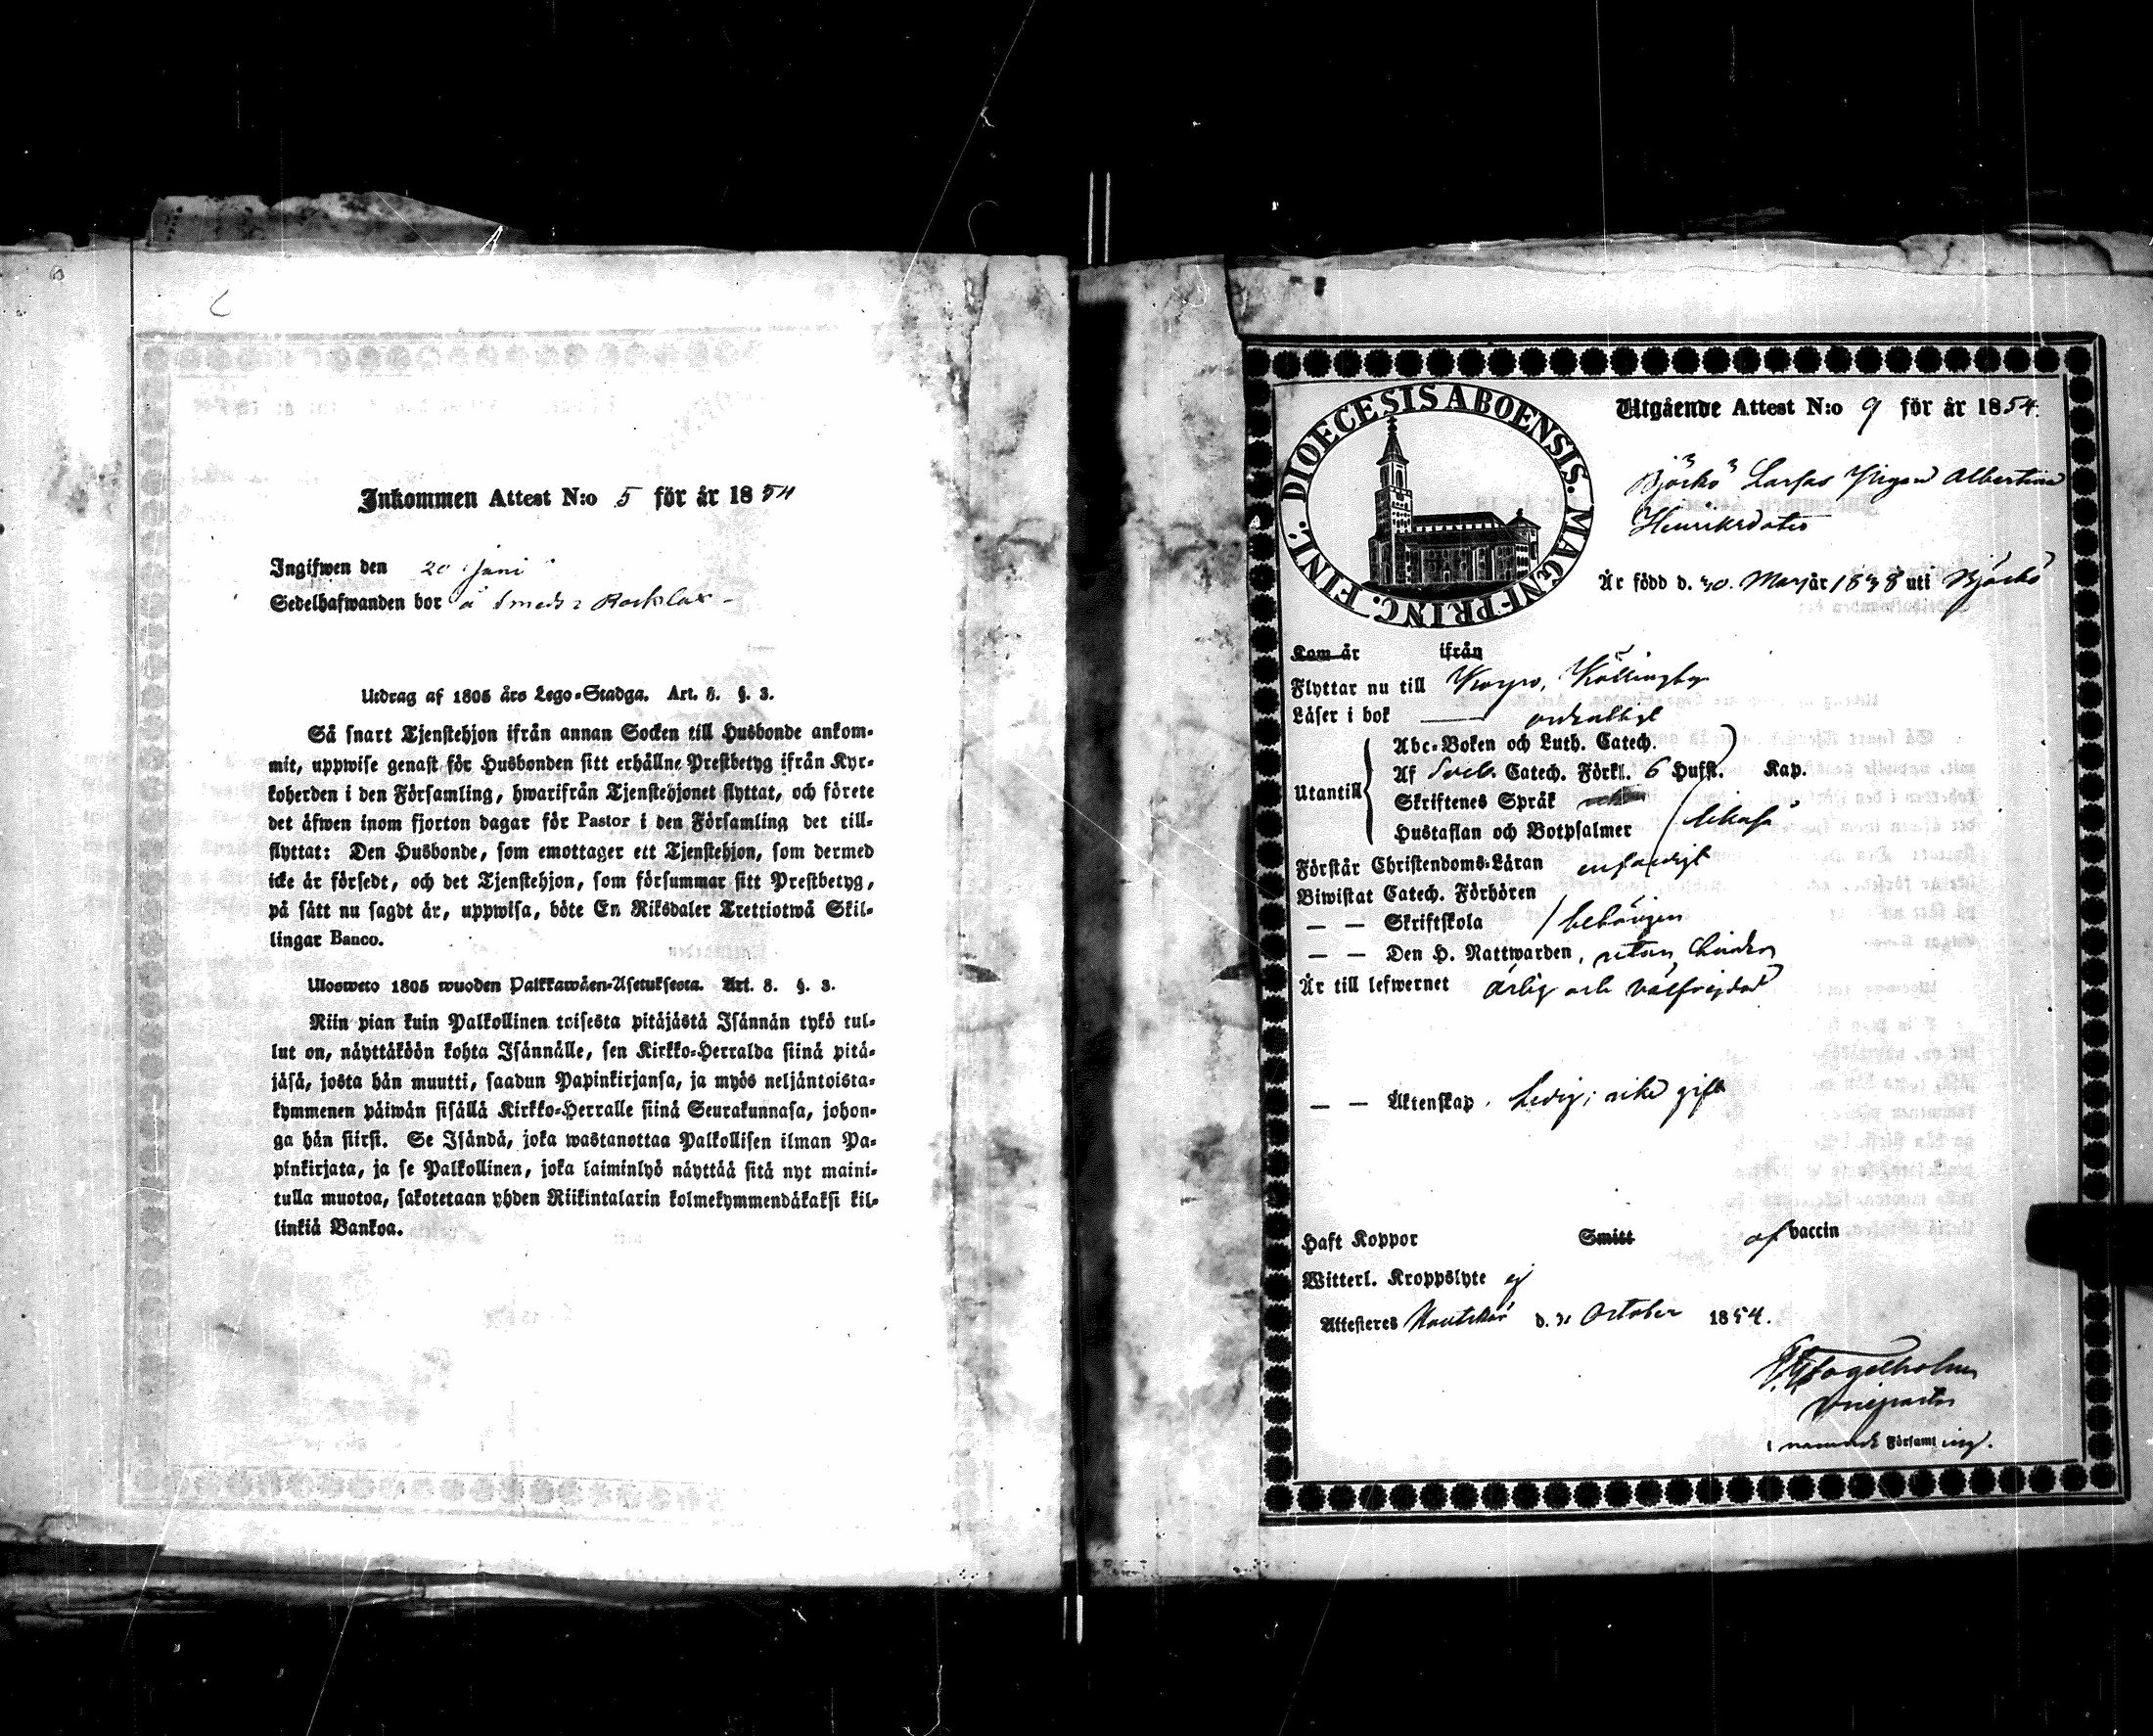 Inkommen Attest N:o 5 för år 1854
Ingifwen den 20 Juni
Sedelhafwanden bor å Smeds Rocklax
Utdrag af 1805 års Lego-Stadga. Art. 8. §. 3.
Så snart Tjenstehjon ifrån annan Socken till Husbonde ankom-
mit, uppwise genast för Husbonden sitt erhållne Prestbetyg ifrån Kyr-
koherden i den Församling, hwarifrån Tjenstehjonet flyttat, och förete
det äfwen inom fjorton dagar för Pastor i den Församling det till-
flyttat: Den Husbonde, som emottager ett Tjenstehjon, som dermed
icke är försedt, och det Tjenstehjon, som försummar sitt Prestbetyg,
på sätt nu sagdt är, uppwisa, böte En Riksdaler Trettiotwå Skil-
lingar Banco.
Ulosweto 1805 wuoden Palkkawäen-Asetuksesta. Art. 8. §. 3.
Niin pian kuin Palkollinen toisesta pitäjästä Isännän tykö tul-
lut on, näyttäköön kohta Isännälle, sen Kirkko-Herralda siinä pitä-
jäsä, josta hän muutti, saadun Papinkirjansa, ja myös neljäntoista-
kymmenen päiwän sisällä Kirkko-Herralle siinä Seurakunnasa, johon-
ga hän siirst. Se Isändä, joka wastanottaa Palkollisen ilman Pa-
pinkirjata, ja se Palkollinen, joka laiminlyö näyttää sitä nyt maini-
tulla muotoa, sakotetaan yhden Riikintalarin kolmekymmendäkaksi kil-
linkiä Bankoa.
DIOECESIS ABOENSIS. MAGNI PRINC. FINL.
Utgående Attest N:o 9 för år 1854.
Björkö Larsas Pigan Albertina
Henriksdoter
Är född d. 30. Maj år 1838 uti Björkö
Kom år ifrån
Flyttar nu till Korpo, Källingby
Läser i bok ordentligt
Abc-Boken och Luth. Catech.
Af Sveb. Catech. Förkl. 6 Hufst. Kap.
Utantill
Skriftenes Språk
Hustaflan och Botpsalmer likaså
Förstår Christendoms-Läran enfaldigt
Biwistat Catech. Förhören
— — Skriftskola behörigen
— — Den H. Nattwarden, utan hinder
Är till lefwernet ärlig och välfrejdad
— — Äktenskap. Ledig; icke gift
Haft Koppor Smitt af vaccin
Witterl. Kroppslyte ej
Attesteres Houtskär d. 31 October 1854.
Fogelholm
Vicepastor
i nämnde Församling.